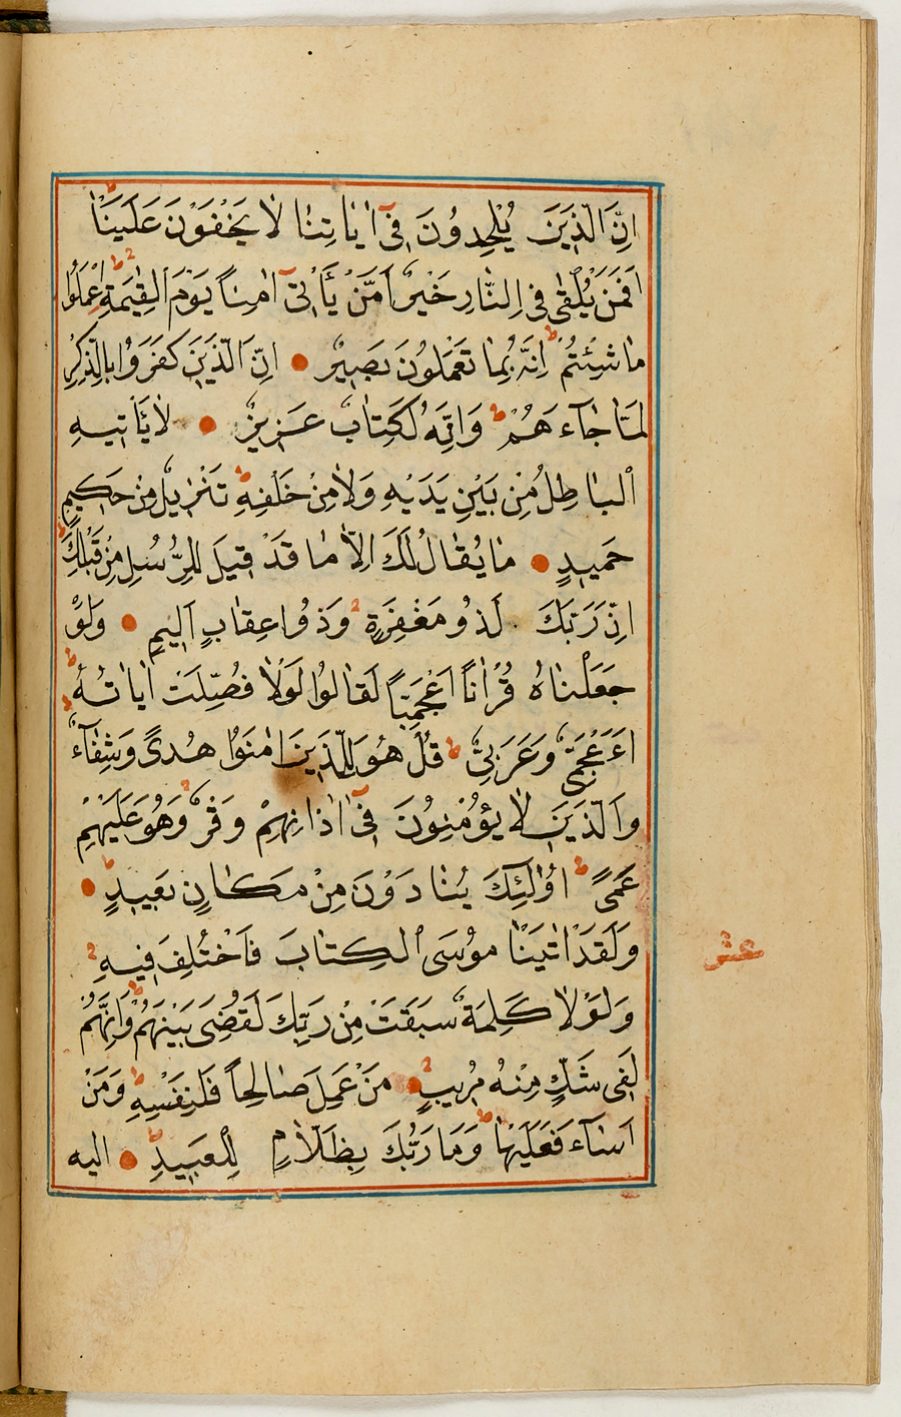 اِنَّ الَّذِينَ يُلْحِدُونَ فِى اٰيَاتِنَا لَا يَخْفَوْنَ عَلَيْنَا ط
اَفَمَنْ يُلْقٰى فِى النَّارِ خَيْرٌ اَمَّنْ يَأْتِى آمِنًا يَوْمَ الْقِيٰمَةِ ط اِعْمَلُوا
مَا شِئْتُمْ ط اِنَّهُ بِمَا تَعْمَلُونَ بَصِيرٌ اِنَّ الَّذِينَ كَفَرُوا بِالذِّكْرِ
لَمَّا جَاءَهُمْ ط وَاِنَّهُ لَكِتَابٌ عَزِيزٌ لَا يَأْتِيهِ
الْبَاطِلُ مِنْ بَيْنِ يَدَيْهِ وَلَا مِنْ خَلْفِهِ ط تَنْزِيلٌ مِنْ حَكِيمٍ
حَمِيدٍ مَا يُقَالُ لَكَ اِلَّا مَا قَدْ قِيلَ لِلرُّسُلِ مِنْ قَبْلِكَ ط
اِنَّ رَبَّكَ لَذُو مَغْفِرَةٍ وَذُو عِقَابٍ اَلِيمٍ وَلَوْ
جَعَلْنَاهُ قُرْاٰنًا اَعْجَمِيًّا لَقَالُوا لَوْلَا فُصِّلَتْ اٰيَاتُهُ ط
ءَاَعْجَمِىٌّ وَعَرَبِىٌّ ط قُلْ هُوَ لِلَّذِينَ اٰمَنُوا هُدًى وَشِفَاءٌ ط
وَالَّذِينَ لَا يُؤْمِنُونَ فِى اٰذَانِهِمْ وَقْرٌ وَهُوَ عَلَيْهِمْ
عَمًى ط اُولٰئِكَ يُنَادَوْنَ مِنْ مَكَانٍ بَعِيدٍ
وَلَقَدْ اٰتَيْنَا مُوسَى الْكِتَابَ فَاخْتُلِفَ فِيهِ
وَلَوْلَا كَلِمَةٌ سَبَقَتْ مِنْ رَبِّكَ لَقُضِىَ بَيْنَهُمْ ط وَاِنَّهُمْ
لَفِى شَكٍّ مِنْهُ مُرِيبٍ مَنْ عَمِلَ صَالِحًا فَلِنَفْسِهِ ط وَمَنْ
اَسَاءَ فَعَلَيْهَا ط وَمَا رَبُّكَ بِظَلَّامٍ لِلْعَبِيدِ اليه
عشر